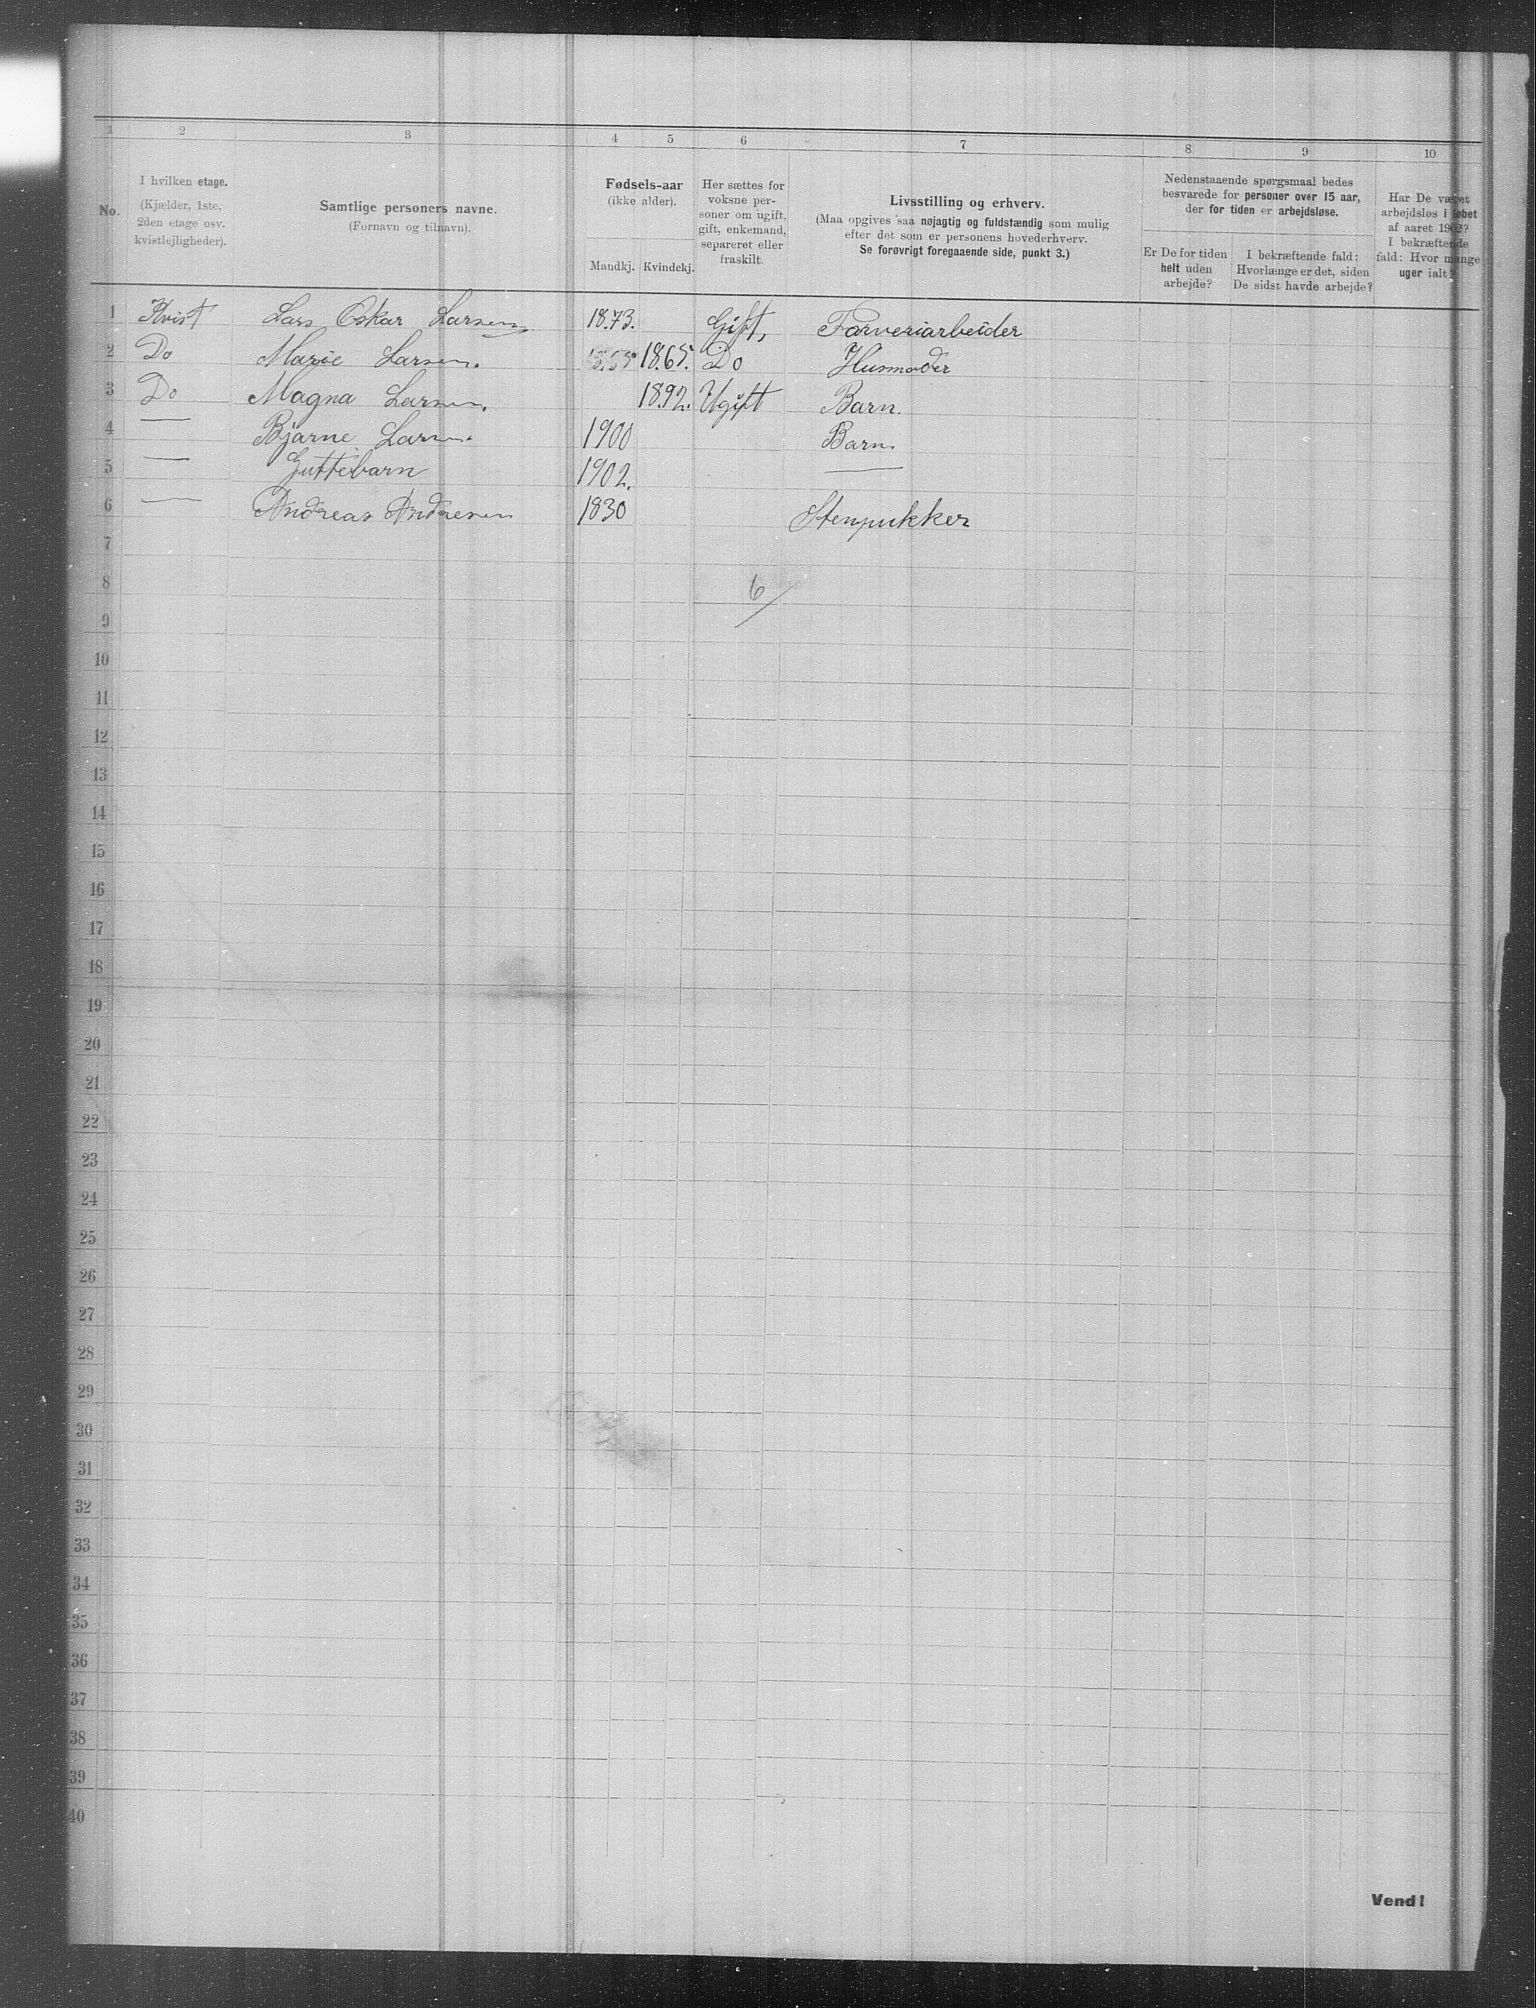 1 2 3 4 5 6 7 8 9 10
No.
I hvilken etage.
(Kjælder, 1ste.
2den etage osv.
kvistlejligheder).
Samtlige personers navne.
(Fornavn og tilnavn).
Fødsels-aar
(ikke alder).
Mandkj. Kvindekj.
Her sættes for
voksne per-
soner om ugift,
gift, enkemand,
separeret eller
fraskilt.
Livsstilling og erhverv.
(Maa opgives saa nøjagtig og fuldstændig som mulig
efter det som er personens hovederhverv.
Se forøvrigt foregaaende side, punkt 3.)
Nedenstaaende spørgsmaal bedes
besvarede for personer over 15 aar,
der for tiden er arbejdsløse.
Er De for tiden
helt uden
arbejde?
I bekræftende fald:
Hvorlænge er det, siden
De sidst havde arbejde?
Har De været
arbejdsløs i løbet
af aaret 1902?
I bekræftende
fald: Hvor mange
uger ialt?
1 Kvist Lars Oskar Larsen 1873. Gift, Farveriarbeider
2 Do Marie Larsen. 1865. Do Husmoder
3 Do Magna Larsen. 1892. Ugift Barn.
4 — Bjarne Larsen. 1900 Barn.
5 — Guttebarn 1902. —
6 — Andreas Andresen 1830 Stenpukker
7
8 6/
9
10
11
12
13
14
15
16
17
18
19
20
21
22
23
24
25
26
27
28
29
30
31
32
33
34
35
36
37
38
39
40
Vend!